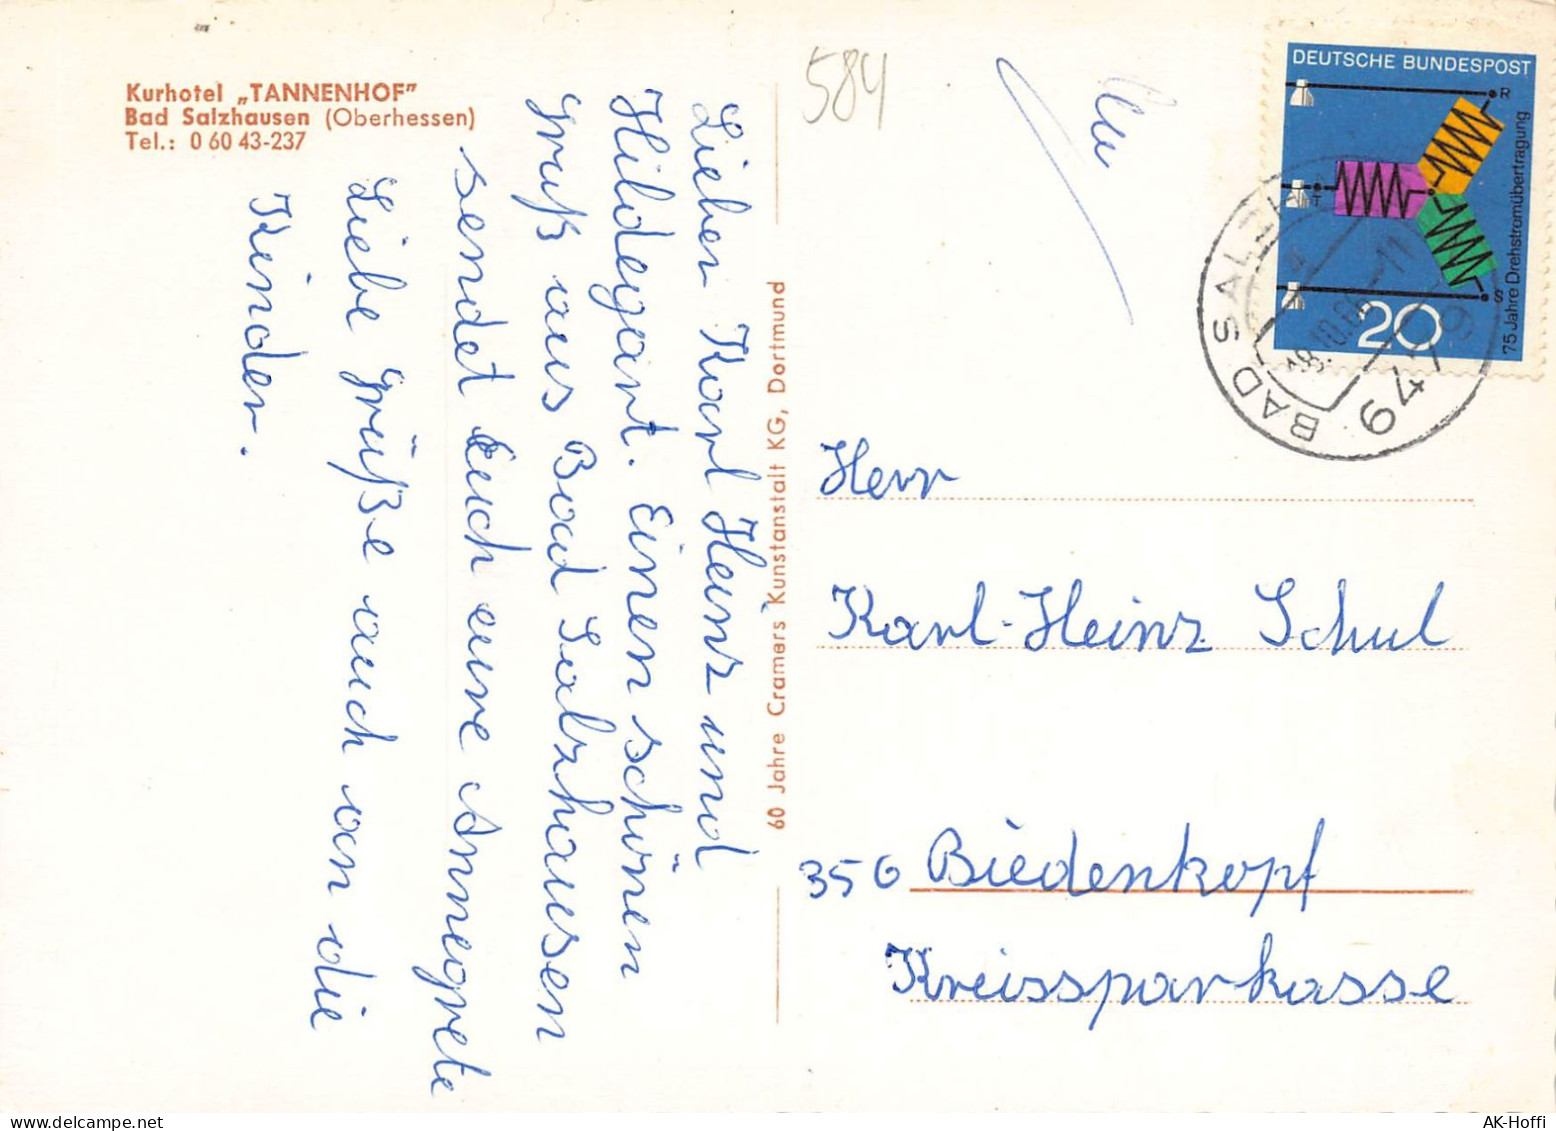 Kurhotel „TANNENHOF"
Bad Salzhausen (Oberhessen)
Tel.: 0 60 43-237
Lieber Karl Heinz und
Hildegart. Einen schönen
Gruß aus Bad Salzhausen
sendet Euch eure Annegrete
Liebe Grüße auch an die
Kinder.
60 Jahre Cramers Kunstanstalt KG, Dortmund
584
DEUTSCHE BUNDESPOST
R
T
S
75 Jahre Drehstromübertragung
20
6479 BAD SALZ
18.10.66-11
Herr
Karl-Heinz Schul
356 Biedenkopf
Kreissparkasse
AK-Hoffi